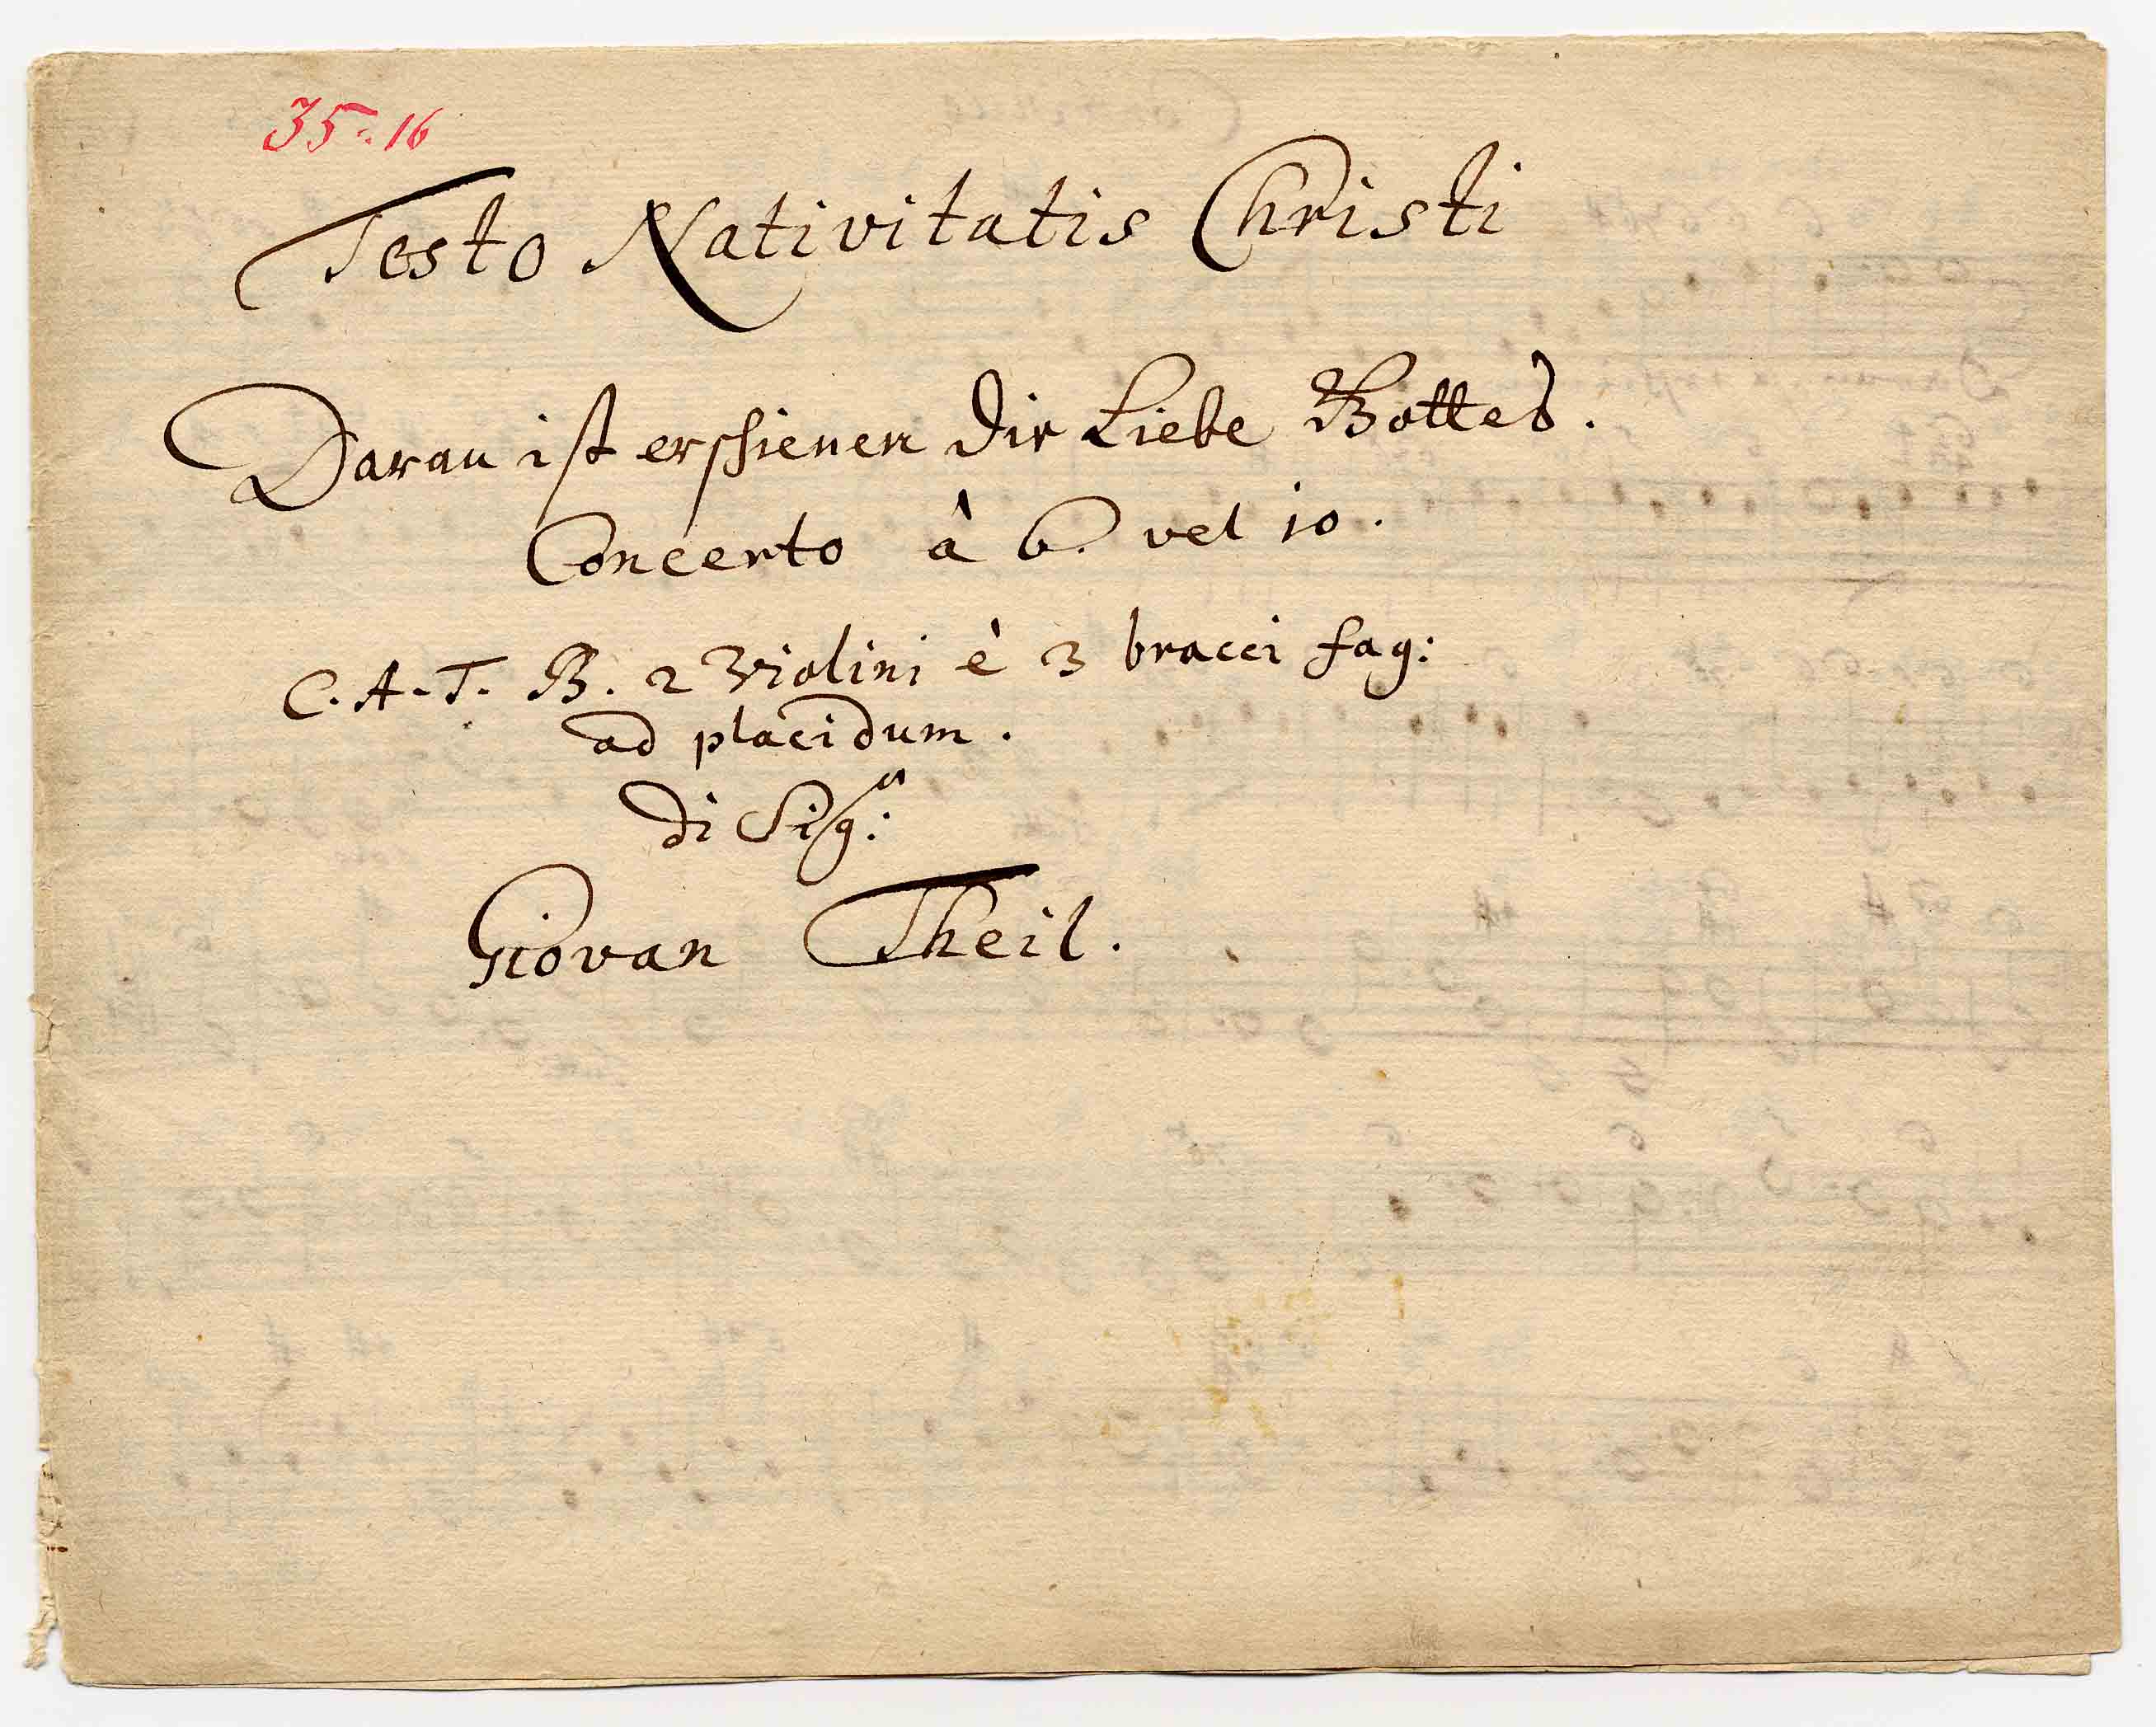 35:16
Festo Nativitatis Christi
Daran ist erschienen die Liebe Gottes.
Concerto à 6. vel 10.
C. A. T. B. 2 Violini è 3 bracci fag:
ad placidum.
di Sig:r
Giovan Theil.